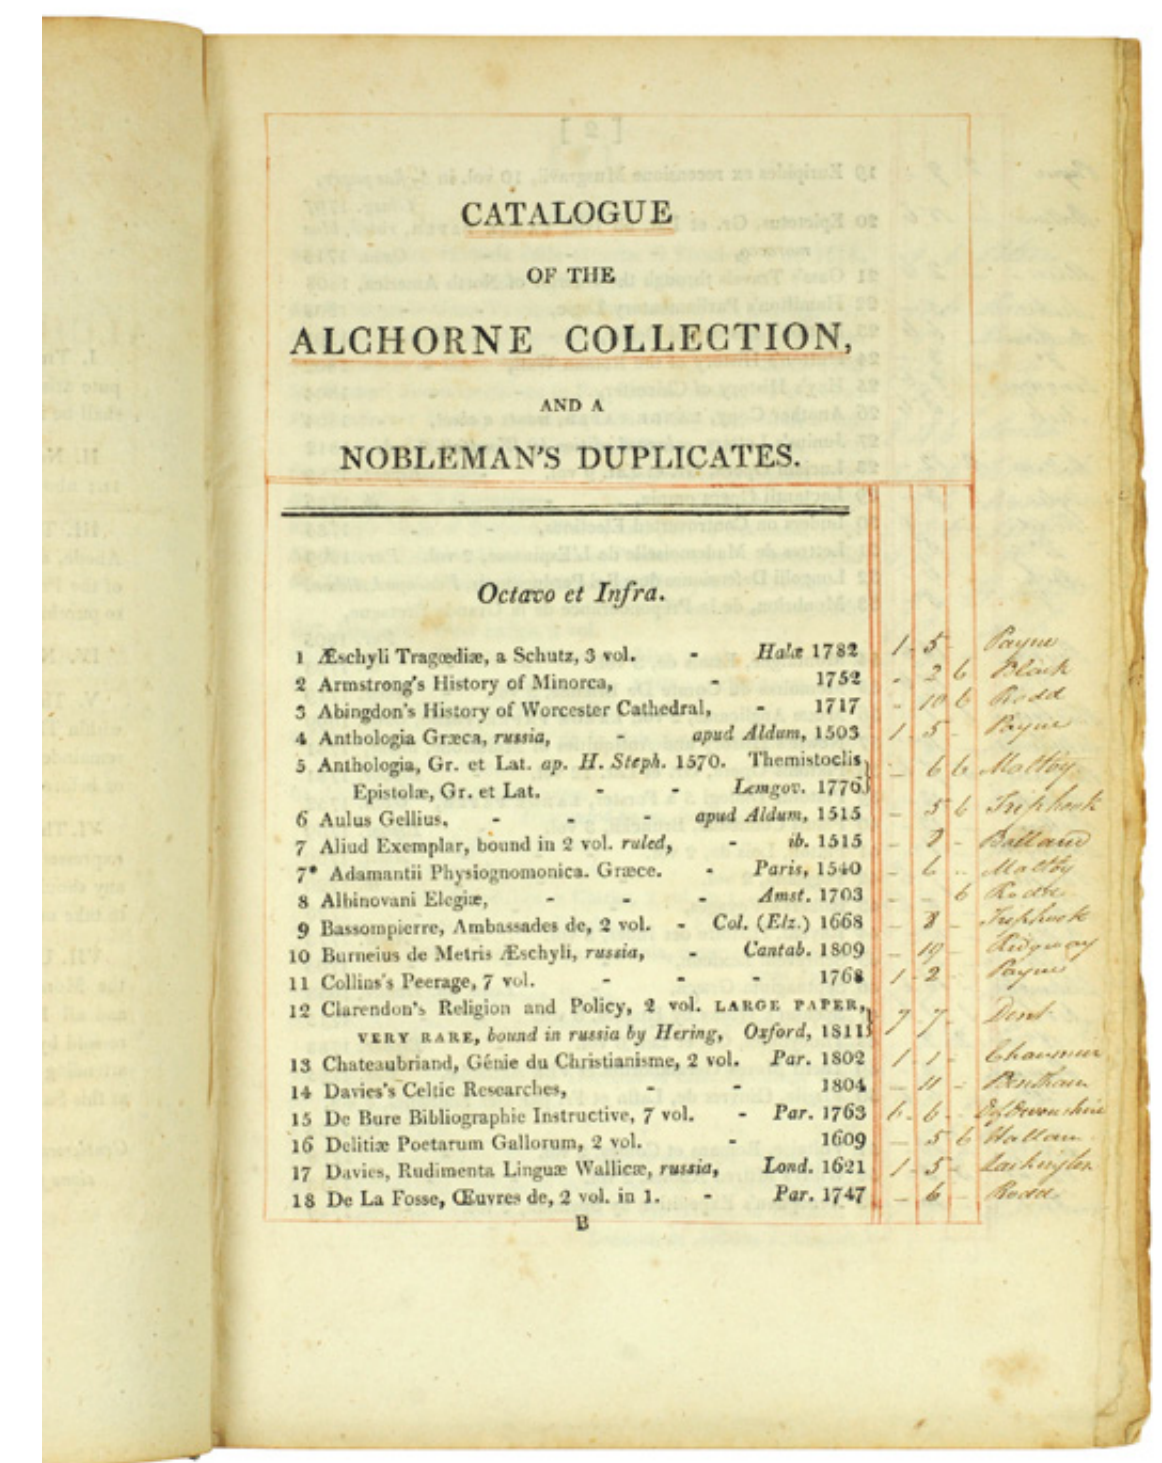 CATALOGUE
OF THE
ALCHORNE COLLECTION,
AND A
NOBLEMAN'S DUPLICATES.
Octavo et Infra.
1 Æschyli Tragœdiæ, a Schutz, 3 vol. - Halæ 1782 1 - 5 - Payne
2 Armstrong's History of Minorca, - 1752 - 2 6 Black
3 Abingdon's History of Worcester Cathedral, - 1717 - 10 6 Rodd
4 Anthologia Græca, russia, - apud Aldum, 1503 1 - 5 - Payne
5 Anthologia, Gr. et Lat. ap. H. Steph. 1570. Themistoclis
Epistolæ, Gr. et Lat. - - Lemgov. 1776 - 6 6 Maltby
6 Aulus Gellius, - - - apud Aldum, 1515 - 5 6 Triphook
7 Aliud Exemplar, bound in 2 vol. ruled, - ib. 1515 -
7* Adamantii Physiognomonica. Græce. - Paris, 1540 - 6 - Maltby
8 Albinovani Elegiæ, - - - Amst. 1703 - - 6
9 Bassompierre, Ambassades de, 2 vol. - Col. (Elz.) 1668 - 8 - Triphook
10 Burneius de Metris Æschyli, russia, - Cantab. 1809 - 19 - Ridgway
11 Collins's Peerage, 7 vol. - - - 1768 1 - 2 - Payne
12 Clarendon's Religion and Policy, 2 vol. LARGE PAPER,
VERY RARE, bound in russia by Hering, Oxford, 1811 7 7 - Dent
13 Chateaubriand, Génie du Christianisme, 2 vol. Par. 1802 1 - 1 -
14 Davies's Celtic Researches, - - 1804 - 11 - Bentham
15 De Bure Bibliographie Instructive, 7 vol. - Par. 1763 6 - 6 -
16 Delitiæ Poetarum Gallorum, 2 vol. - 1609 - 5 6
17 Davies, Rudimenta Linguæ Wallicæ, russia, Lond. 1621 1 - 5 -
18 De La Fosse, Œuvres de, 2 vol. in 1. - Par. 1747 - 6 - Rodd
B